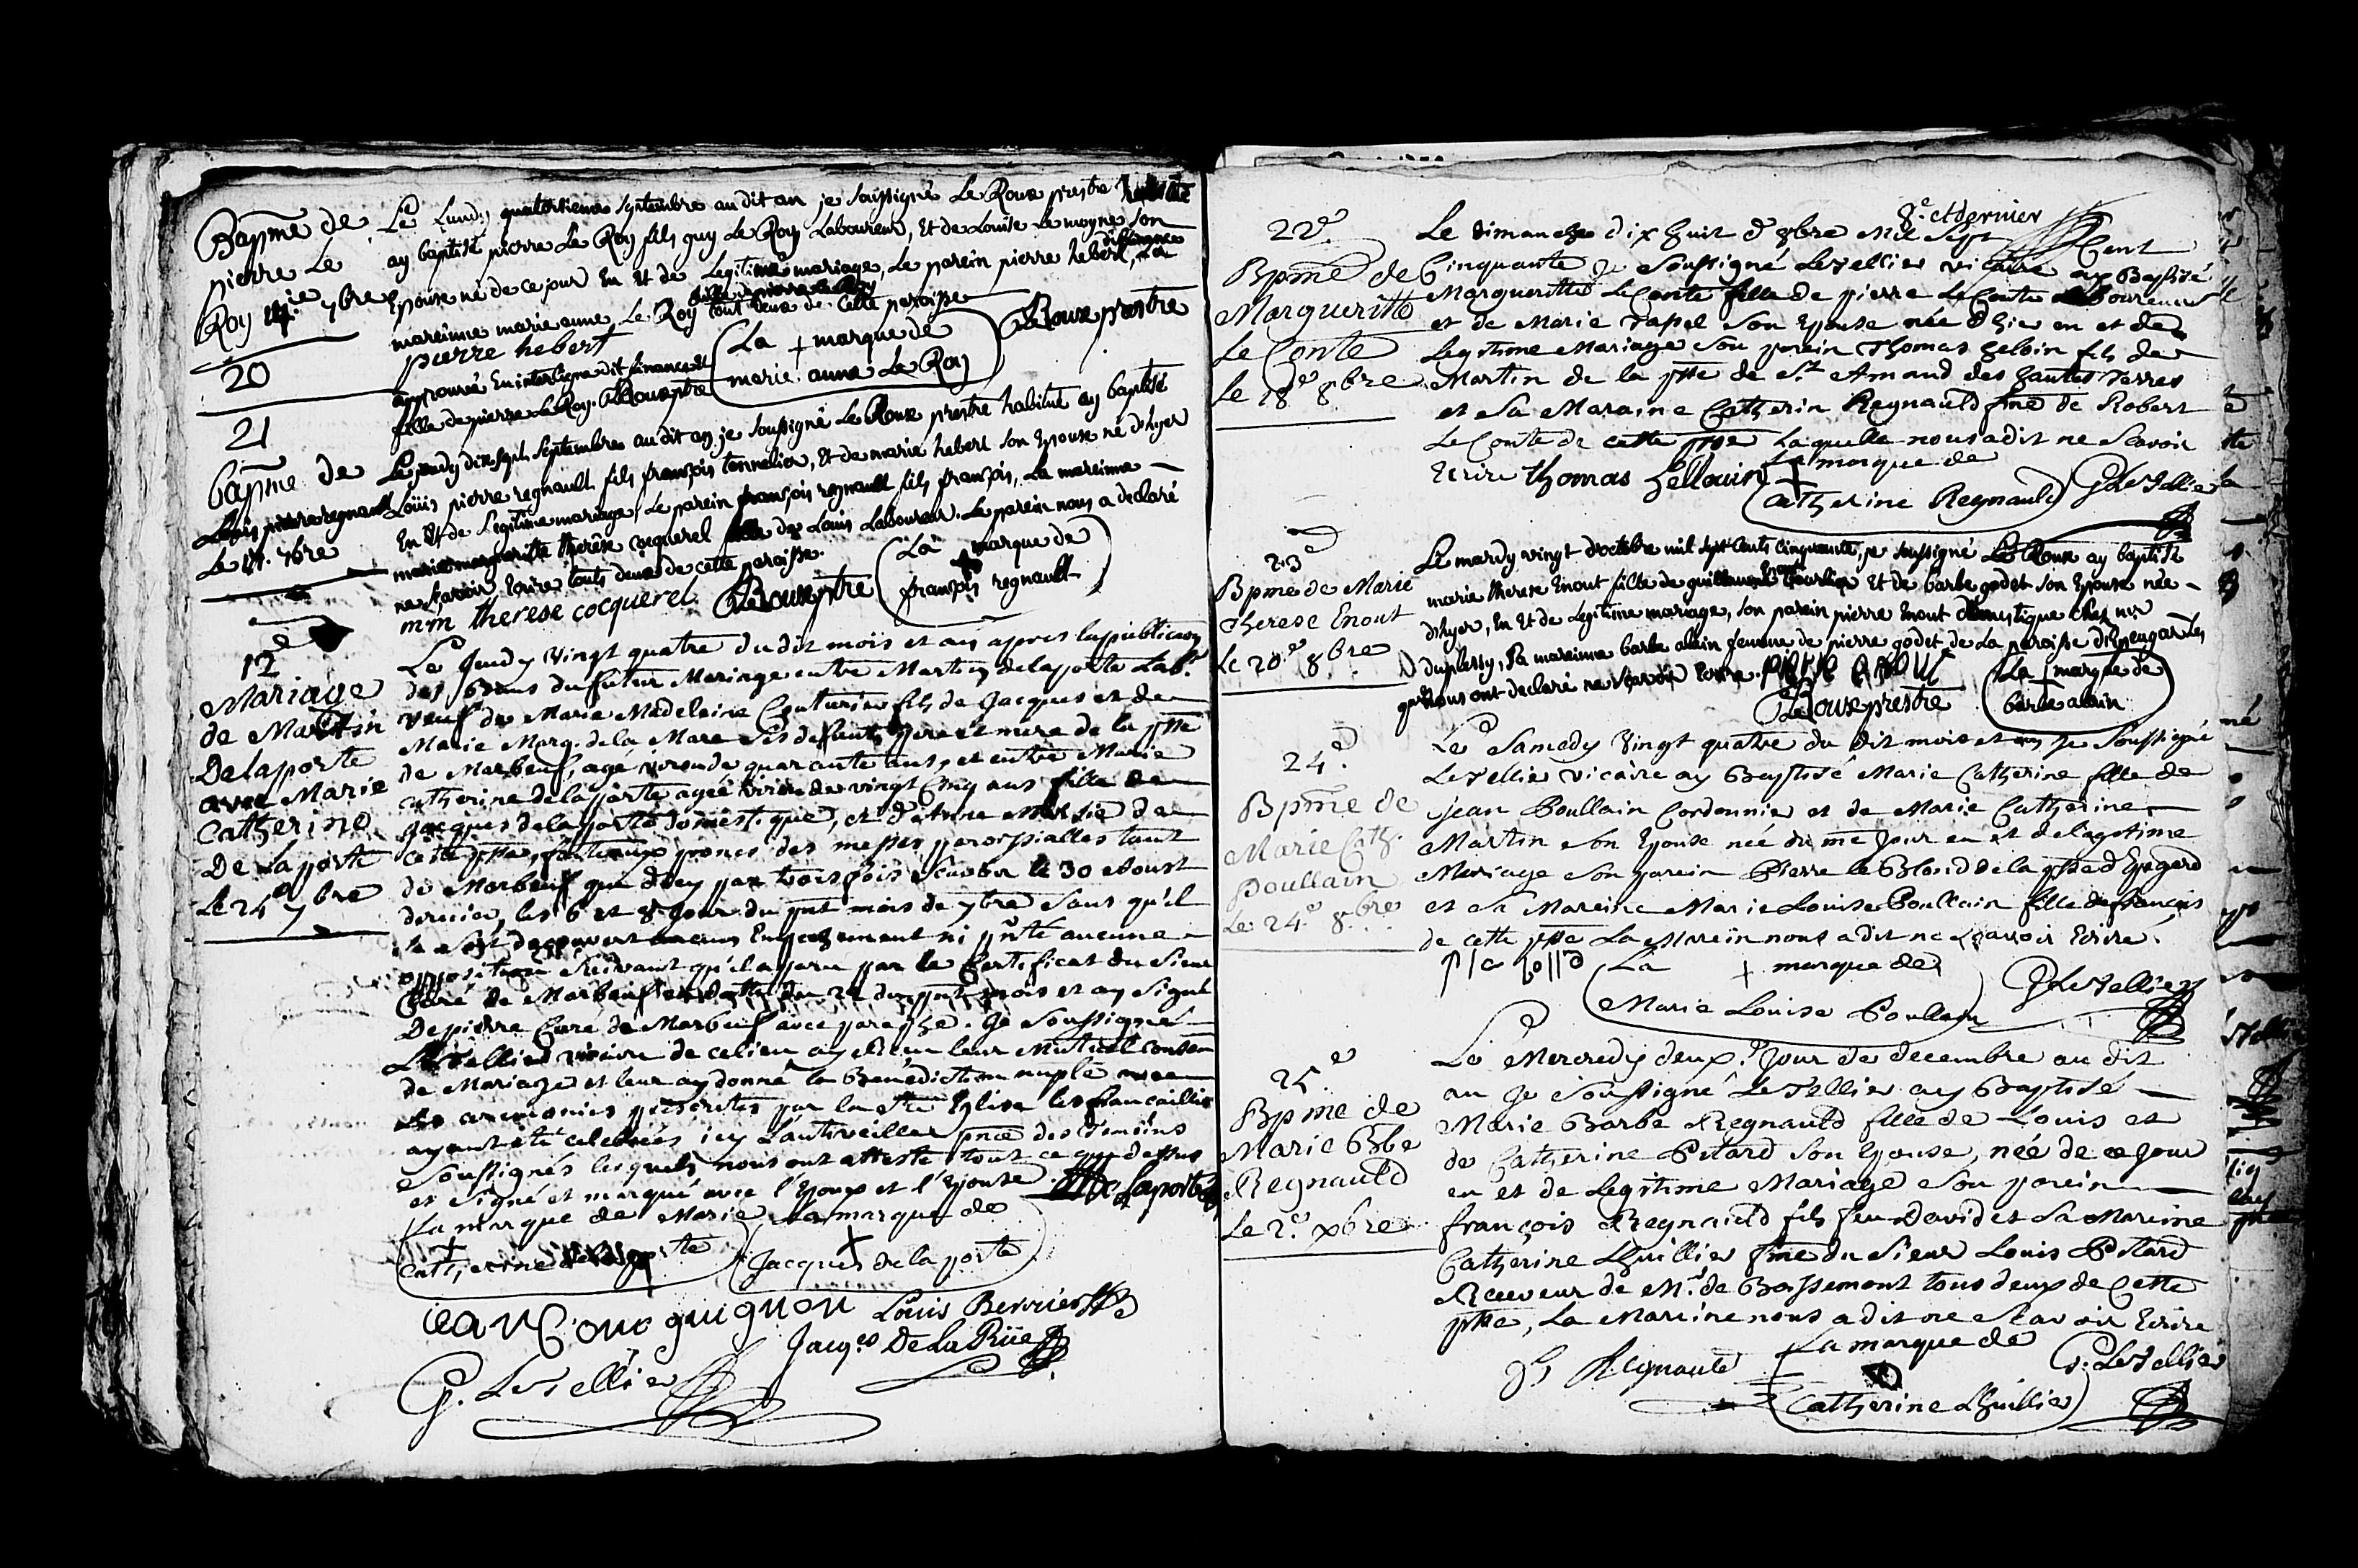 Bapme de
pierre Le
Roy 14ie 7bre
20
Le Lundy quatorzieme Septembre au dit an je soussigné Le Roux prestre
ay baptisé pierre Le Roy fils guy Le Roy Laboureur, Et de Louise Le moyne son
Epouse né de ce jour En Et de Legitime mariage, Le parein pierre hebert, La
mareinne marie anne Le Roy tout deux de cette paroisse
pierre hebert
La marque de
marie anne Le Roy
Le Roux prestre
approuvé En interligne dit
fille de pierre Le Roy. Le Roux ptre
21
bapme de
Louis pierre regnault
Le 17. 7bre
Le jeudy dix sept Septembre au dit an je soussigné Le Roux prestre habitué ay baptisé
Loüis pierre regnault fils françois tonnelier, Et de marie hebert son Epouse né d'hyer
En Et de Legitime mariage, Le parein françois regnault fils françois, La mareinne
marie marguerite therèse cocquerel fille de Louis Laboureur. Le parein nous a declaré
ne sçavoir Ecrire touts deux de cette paroisse.
m m therese cocquerel Le Roux ptre
La marque de
françois regnault
12e
Mariage
de Martin
Delaporte
avec Marie
Catherine
De Laporte
Le 24e 7bre
Le Jeudy vingt quatre du dit mois et an apres la publicaon
des bans du futur Mariage entre Martin delaporte Labr
veuf de Marie Madeleine Couturier fils de Jacques et de
Marie Marg. de la Mare ses defunts pere et mere de la psse
de Marbeuf, agé viron de quarante ans, et entre Marie
catherine delaporte agée viron de vingt Cinq ans fille de
Jacques delaporte domestique, et d'Anne de
cette psse, faits aux prones des messes paroissialles tant
de Marbeuf que d'icy par trois fois Scavoir le 30 Aoust
dernier, les 6 et 8 Jour du pnt mois de 7bre sans qu'il
se soit decouvert aucuns Empechement ni pnte aucune
opposition suivant qu'il apparu par le Certificat du Sieur
Curé de Marbeuf en datte du 22 du pnt mois et an Signé
Depierre Curé de Marbeuf avec paraphe. Je soussigné
LeTellier vicaire de ce lieu ay Recu leur Mutuel consen
de Mariage et leur ay donné la Benediction nuple avec
les ceremonies prescrites par la Ste Eglise les fiancailles
ayant été celebrées icy l'antiveille pnce des Temoins
Soussignés lesquels nous ont attesté tout ce que dessus
et signé et marqué avec l'Epoux et l'Epouse
La marque de Marie
Catherine delaporte
La marque de
Jacques de la porte
M De Laporte
Jean Couc guignon Louis Berrier
Jacqes De La Rüe
G. LeTellier
8e et dernier
22e
Bpme de
Margueritte
Le Conte
Le 18e 8bre
Le dimanche dix huit d'8bre Mil Sept Cent
Cinquante Je Soussigné LeTellier vicaire ay Baptisé
Margueritte Le Conte fille de pierre Le Conte Laboureur
et de Marie Son Epouse née d'hier en et de
Legitime Mariage Son parein Thomas helloin fils de
Martin de la psse de St Amand des hautes Terres
et Sa Maraine Catherin Regnauld fme de Robert
Le Conte de cette psse Laquelle nous a dit ne Scavoir
Ecrire Thomas hellouin
La marque de
Catherine Regnauld
G LeTellier
23e
Bpme de Marie
Therese Enout
Le 20e 8bre
Le mardy vingt d'octobre mil sept Cents cinquante, je soussigné Le Roux ay baptisé
marie therese Enout fille de guillaume Enout Et de barbe godet son Epouse née
d'hyer, En Et de Legitime mariage, son parein pierre Enout domestique chez mr
duplessy, sa mareinne barbe alain femme de pierre godet de La paroisse
qui nous ont declaré ne sçavoir Ecrire.
Le Roux prestre
La marque de
barbe alain
24e
Bpme de
Marie Cath.
Poullain
Le 24e 8bre
Le Samedy vingt quatre du dit mois et an Je Soussigné
LeTellier vicaire ay Baptisé Marie Catherine fille de
jean Poullain Cordonnier et de Marie Catherine
Martin Son Epouse née du me Jour en et de legitime
Mariage Son parein Pierre le Blond de la psse d'Epegard
et Sa Mareine Marie Louise Poullain fille de francois
de cette psse La Marein nous a dit ne Scavoir Ecrire.
La marque de
Marie Louise Poullain
G LeTellier
25e
Bpme de
Marie Bbe
Regnauld
Le 2e xbre
Le Mercredy deux.e Jour de decembre au dit
an Je Soussigné LeTellier ay Baptisé
Marie Barbe Regnauld fille de Louis et
de Catherine Pitard Son Epouse, née de ce Jour
en et de Legitime Mariage Son parein
françois Regnauld fils feu David et Sa Mareine
Catherine Lhuillier fme du Sieur Louis Pitard
Receveur de Mr. de Bossemont tous deux de Cette
psse, La Mareine nous a dit ne Scavoir Ecrire
Regnauld
La marque de
Catherine Lhuillier
G. LeTellier